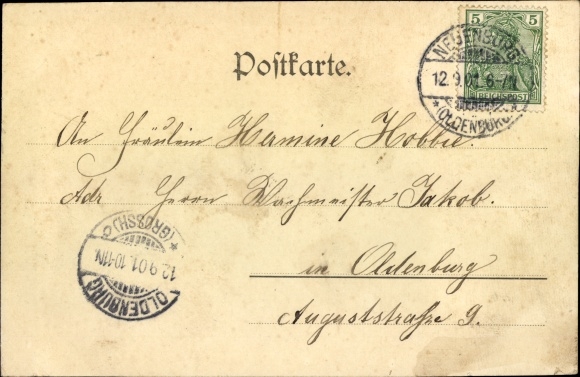 5 5
REICHSPOST
NEUENBURG
12.9.01. 6-7N.
*(OLDENBURG)*
Postkarte.
An Fräulein Hermine Hobbie.
Adr Herrn Wachmeister Jakob.
in Oldenburg
Auguststraße 9.
OLDENBURG
12.9.01.10-11N.
*(GROSSH.) c